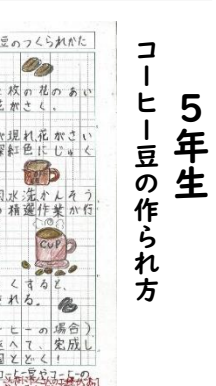 5年生
コーヒー豆の作られ方
豆のつくられかた
枚の花のあい
がさく。
が現れ花がさい
深紅色にじゅく
水洗かんそう
精選作業が行
CUP
くすると、
れる。
ーヒーの場合)
をへて、完成し
とどく!
コーヒー豆やコーヒーの